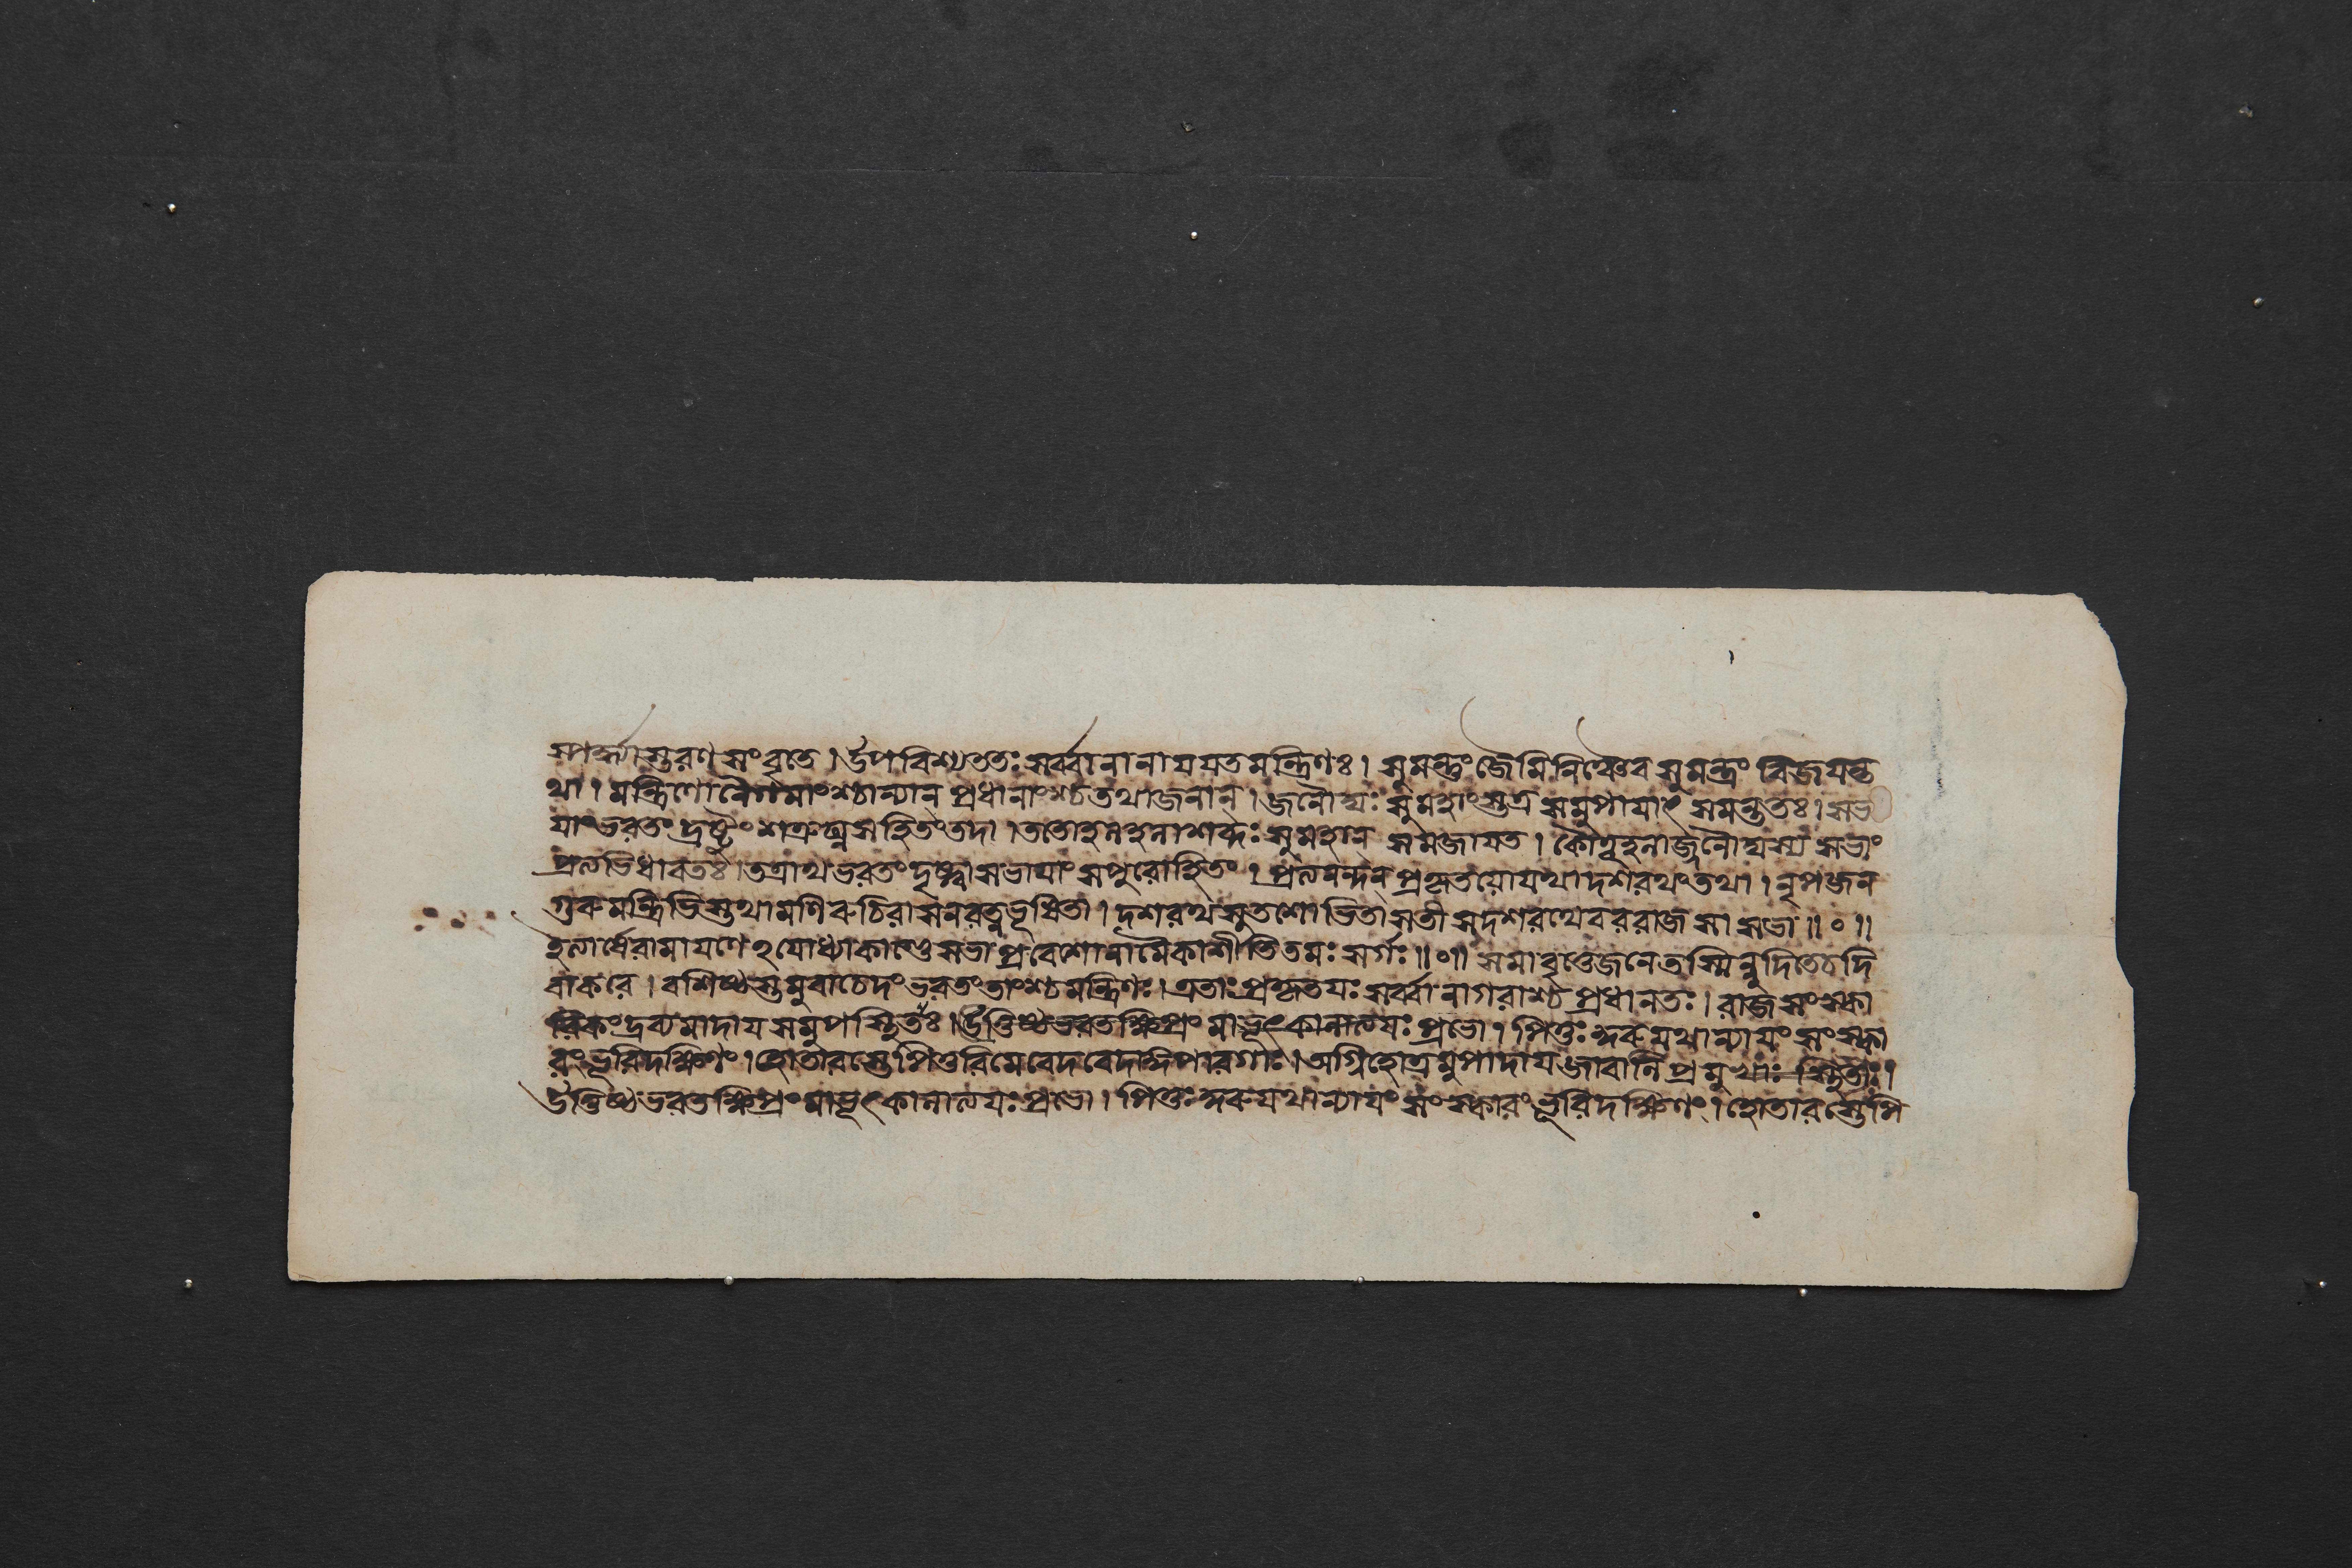 স্পর্দ্ধ্যাস্তরণসংবৃতে । উপবিশ্য ততঃ সর্ব্বানানাযযত মন্ত্রিণঃ । সুমন্তুং জৈমিনিঞ্চৈব সুমন্ত্রং বিজযন্ত
থা । মন্ত্রিণো নৈগমাংশ্চান্যান প্রধানাংশ্চ তথা জনান্ । জনৌঘঃ সুমহাংস্তত্র সমুপাযাৎ সমন্ততঃ । সভা
যাং ভরতং দ্রষ্টুং শত্রুঘ্নসহিতং তদা । ততো হলহলাশব্দঃ সুমহান সমজাযত । কৌতূহলাজ্জনৌঘস্য সভাং
প্রত্যভিধাবতঃ । তত্রাথ ভরতং দৃষ্ট্বা সভাযাং সপুরোহিতং । প্রত্যনন্দন প্রকৃতযো যথা দশরথং তথা । নৃপজন
গুরুমন্ত্রিভিস্তথা মণিরুচিরাসনরত্নভূষিতা । দশরথসুতশোভিতা সতী সদশরথেব ররাজ সা সভা ॥ ० ॥
ইত্যার্ষে রামাযণে ঽযোধ্যাকাণ্ডে সভাপ্রবেশো নামৈকাশীতিতমঃ সর্গঃ ॥ ० ॥ সমাবৃত্তে জনে তস্মিন্নুদিতে চ দি
বাকরে । বশিষ্ঠস্তমুবাচেদং ভরতং তাংশ্চ মন্ত্রিণঃ । এতাঃ প্রকৃতযঃ সর্ব্বা নাগরাশ্চ প্রধানতঃ । রাজসংস্কা
রিকং দ্রব্যমাদায সমুপস্থিতাঃ । উত্তিষ্ঠ ভরত ক্ষিপ্রং মাভূৎ কালাত্যযঃ প্রভো । পিতুঃ কুরু যথান্যাযং সংস্কা
রং ভূরিদক্ষিণং । হোতারস্তে পিতুরিমে বেদবেদাঙ্গপারগাঃ । অগ্নিহোত্রমুপাদায জাবালিপ্রমুখাঃ স্থিতাঃ ।
উত্তিষ্ঠ ভরত ক্ষিপ্রং মাভূৎ কালাত্যযঃ প্রভো । পিতুঃ কুরু যথান্যাযং সংস্কারং ভূরিদক্ষিণং । হোতারস্তে পি